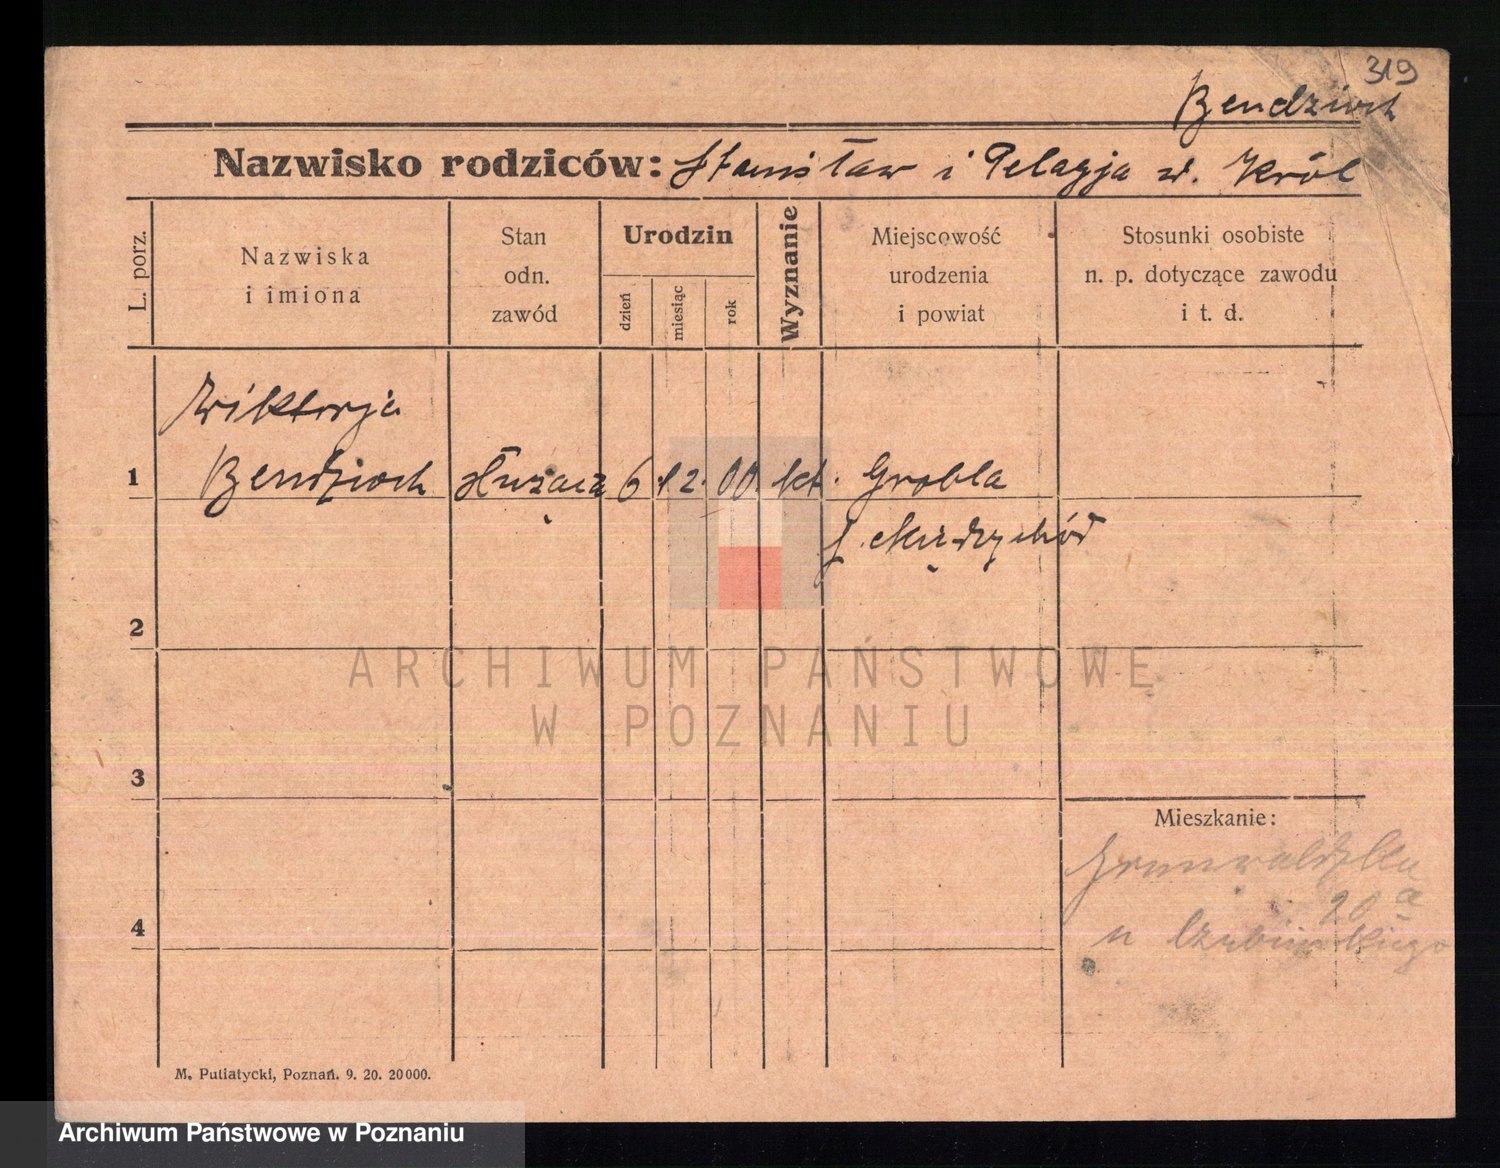 319
Bendzioch
Nazwisko rodziców: Stanisław i Pelagja z. Król
L. porz.
Nazwiska
i imiona
Stan
odn.
zawód
Urodzin
dzień
miesiąc
rok
Wyznanie
Miejscowość
urodzenia
i powiat
Stosunki osobiste
n. p. dotyczące zawodu
i t. d.
Wiktorja
1 Bendzioch służąca 6 12. 00 kt. Grobla
Międzychód
2
3
4
Mieszkanie:
Grunwaldzka
20 a
u
M. Putiatycki, Poznań. 9. 20. 20000.
ARCHIWUM PAŃSTWOWE
W POZNANIU
Archiwum Państwowe w Poznaniu